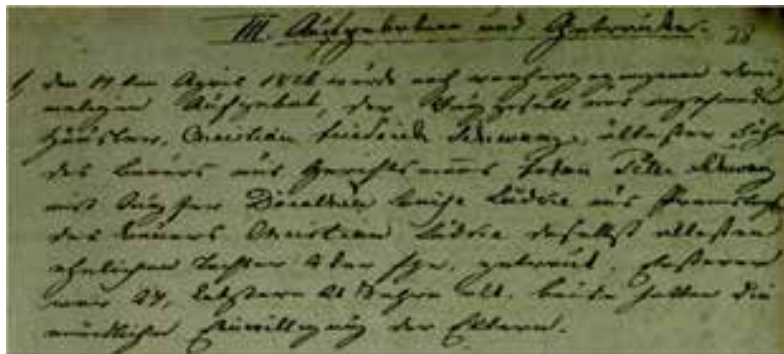 III. Aufgebotene und Getraute. 38
1, den 17ten April 1826 wurde nach vorhergegangenem drei
maligen Aufgebot, der Junggesell und angehende
Häusler, Christian Friedrich Schwarz, ältester Sohn
des Bauers und Gerichtsmanns Johan Schwarz
mit Jungfer Dorothea Luise Lüdke aus
des Bauers Christian Lüdke daselbst ältesten
ehelichen Tochter 4ter Ehe, getraut, Ersterer
war 27, Letztere 21 Jahre alt. beide hatten die
mündliche Einwilligung der Eltern.